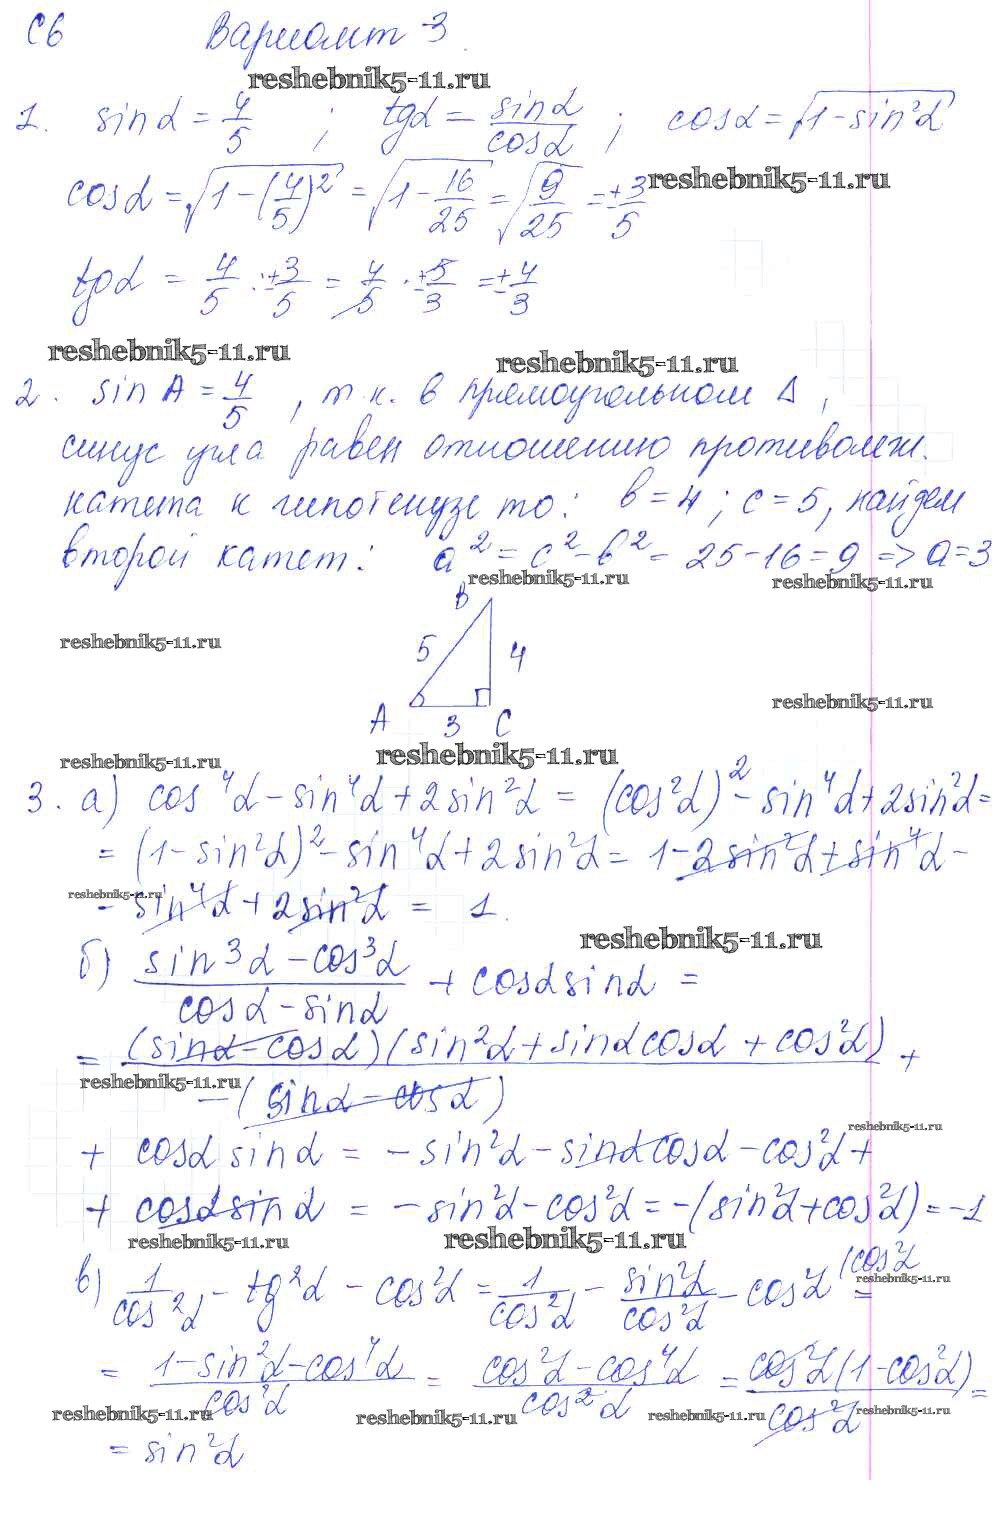 С6 Вариант 3
reshebnik5-11.ru
1. sin α = 4/5 ; tg α = sin α / cos α ; cos α = √(1 - sin²α)
reshebnik5-11.ru
cos α = √(1 - (4/5)²) = √(1 - 16/25) = √(9/25) = ± 3/5
tg α = 4/5 : ± 3/5 = 4/5 · ± 5/3 = ± 4/3
reshebnik5-11.ru reshebnik5-11.ru
2. sin A = 4/5 , т.к. в прямоугольном Δ ,
синус угла равен отношению противолеж.
катета к гипотенузе то: в = 4 ; с = 5, найдем
второй катет: a² = c² - в² = 25 - 16 = 9 => a = 3
reshebnik5-11.ru reshebnik5-11.ru
B
reshebnik5-11.ru
5 4
reshebnik5-11.ru
A 3 C
reshebnik5-11.ru reshebnik5-11.ru
3. а) cos⁴α - sin⁴α + 2sin²α = (cos²α)² - sin⁴α + 2sin²α =
= (1 - sin²α)² - sin⁴α + 2sin²α = 1 - 2sin²α + sin⁴α -
reshebnik5-11.ru
- sin⁴α + 2sin²α = 1.
reshebnik5-11.ru
б) (sin³α - cos³α) / (cos α - sin α) + cos α sin α =
= (sin α - cos α)(sin²α + sin α cos α + cos²α) / -(sin α - cos α) +
reshebnik5-11.ru
reshebnik5-11.ru
+ cos α sin α = - sin²α - sin α cos α - cos²α +
+ cos α sin α = - sin²α - cos²α = -(sin²α + cos²α) = -1
reshebnik5-11.ru reshebnik5-11.ru
в) 1/cos²α - tg²α - cos²α = 1/cos²α - sin²α/cos²α - cos²α (cos²α =
reshebnik5-11.ru
= (1 - sin²α - cos⁴α) / cos²α = (cos²α - cos⁴α) / cos²α = cos²α(1 - cos²α) / cos²α =
reshebnik5-11.ru reshebnik5-11.ru reshebnik5-11.ru reshebnik5-11.ru
= sin²α